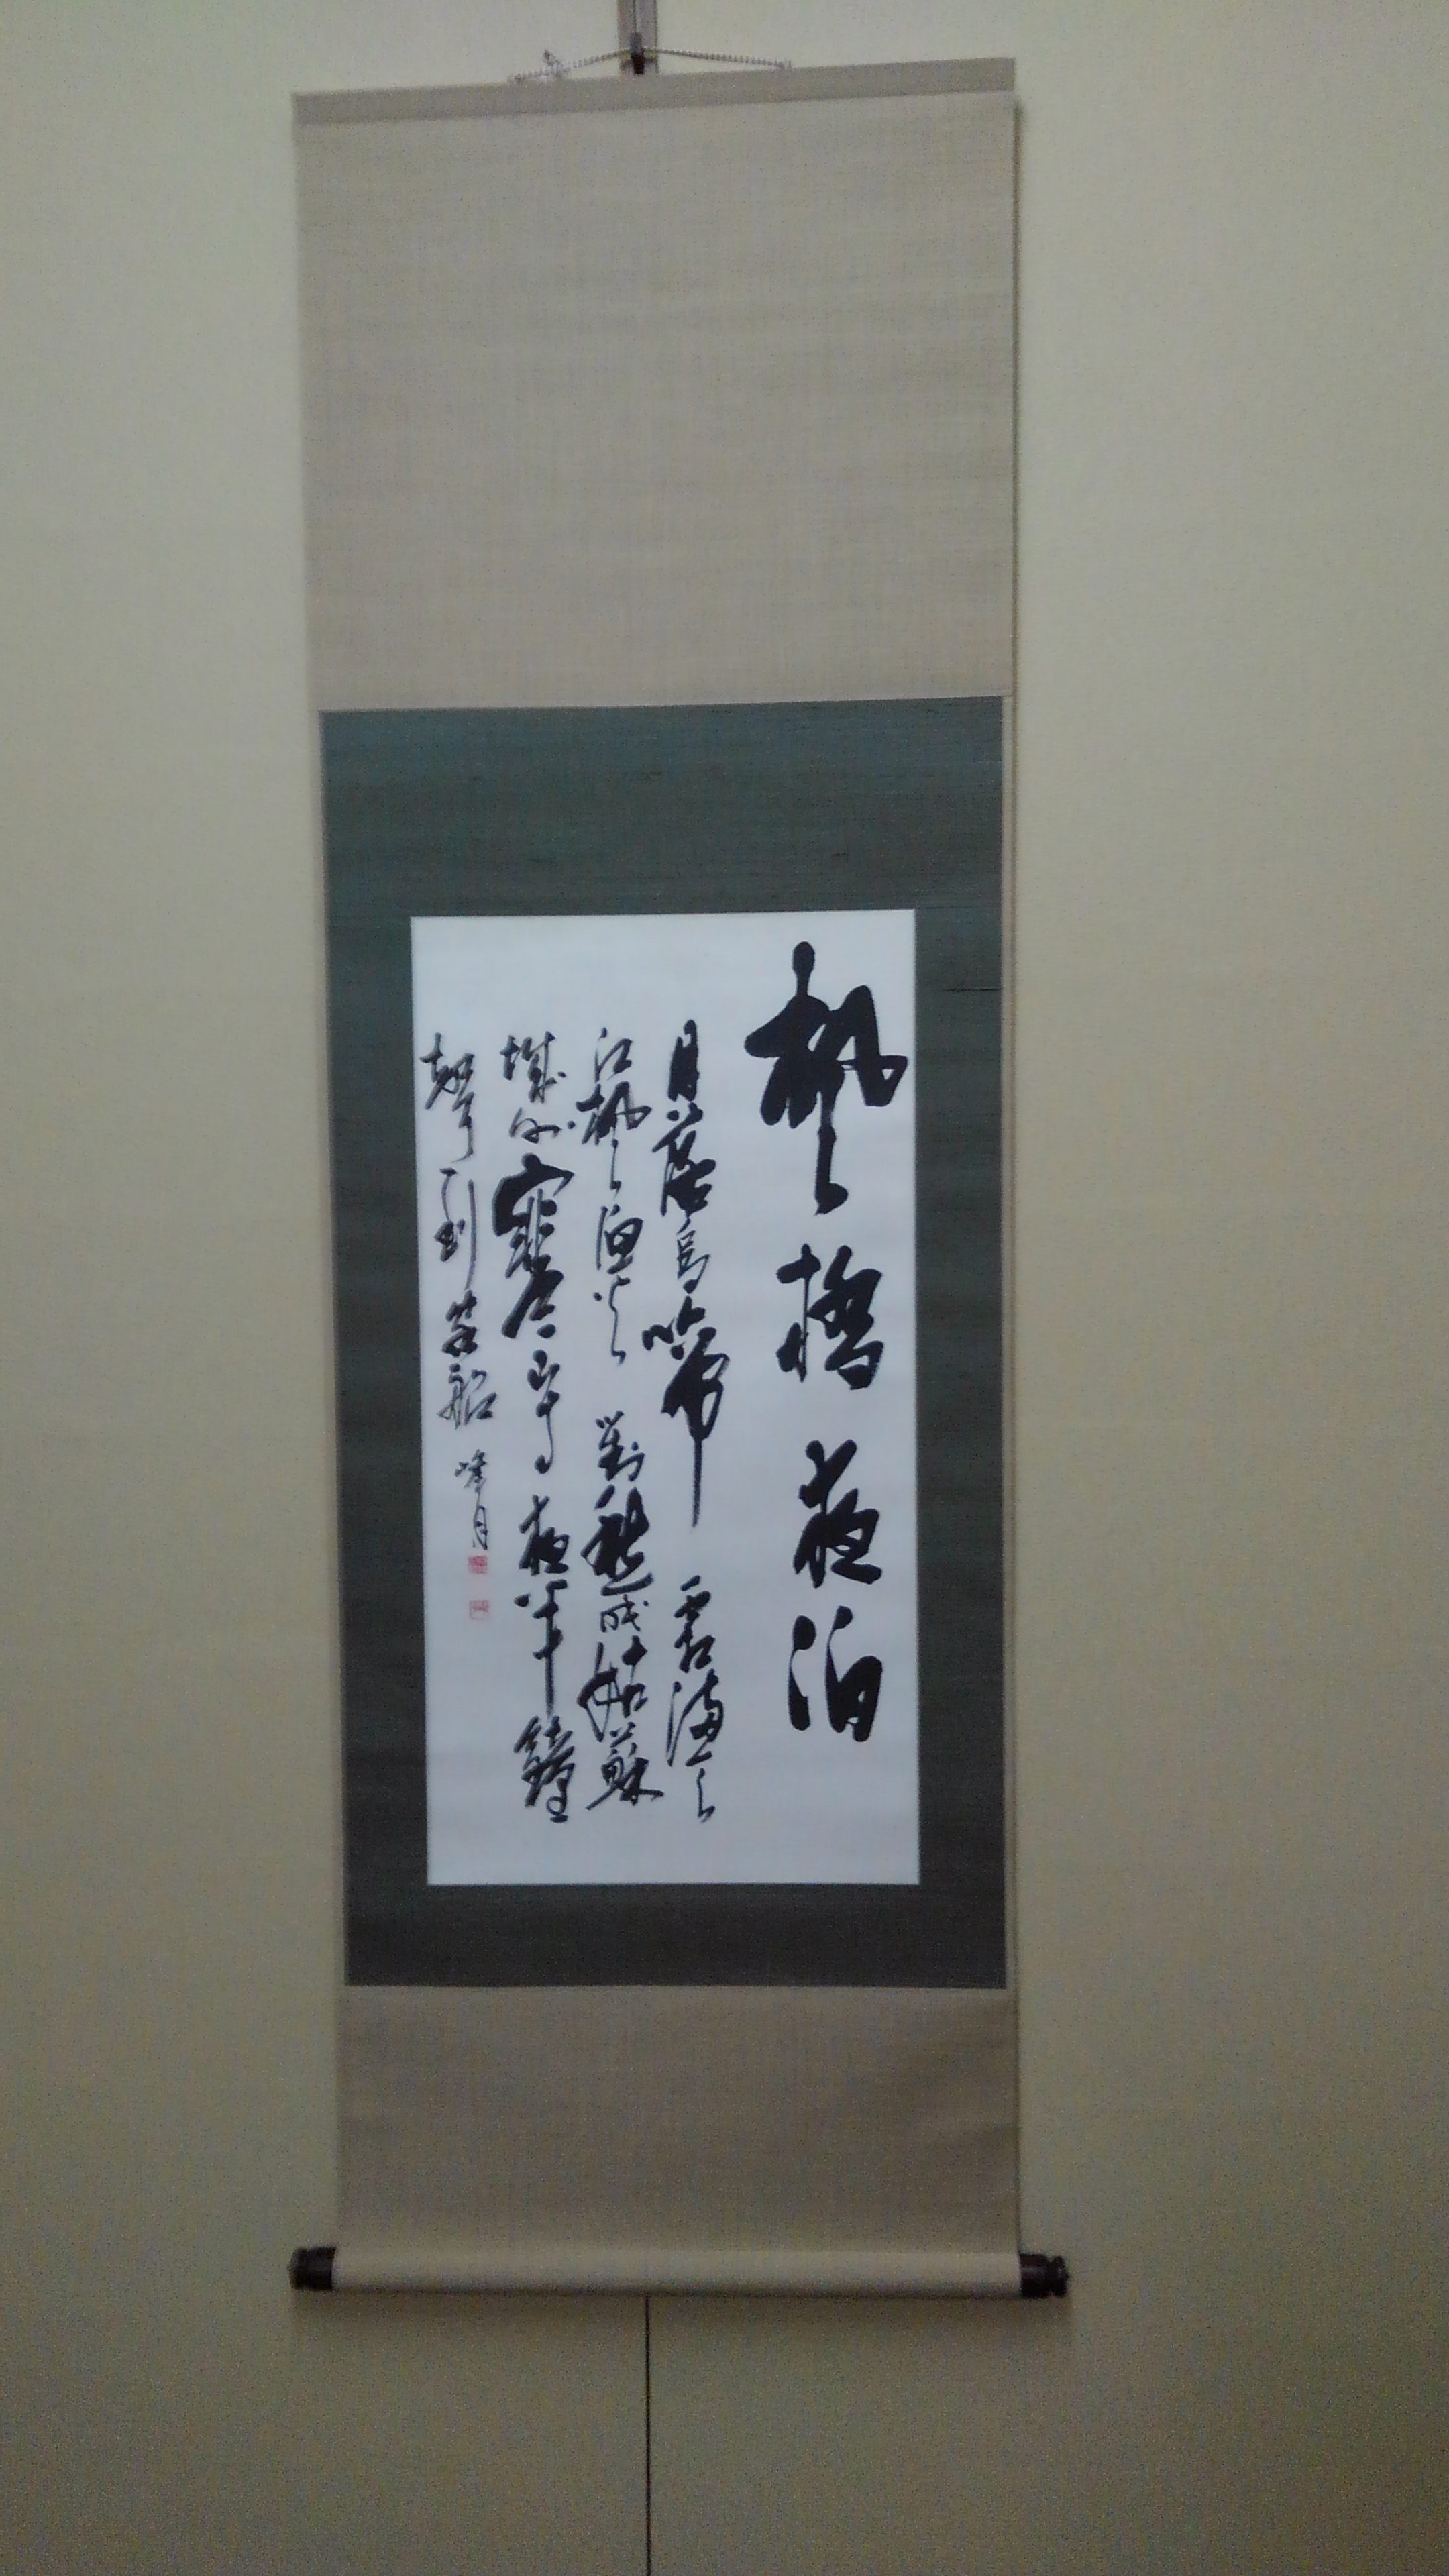 楓橋夜泊
月落烏啼霜滿天
江楓漁火對愁眠姑蘇
城外寒山寺夜半鐘
聲到客船 峰月